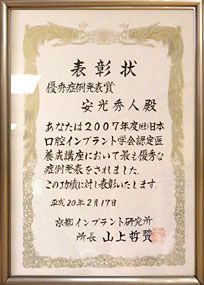 表彰状
優秀症例発表賞
安光秀人殿
あなたは2007年度(社)日本
口腔インプラント学会認定医
養成講座において最も優秀な
症例発表をされました
この功績に対し表彰いたします。
平成20年2月17日
京都インプラント研究所
所長 山上哲賢